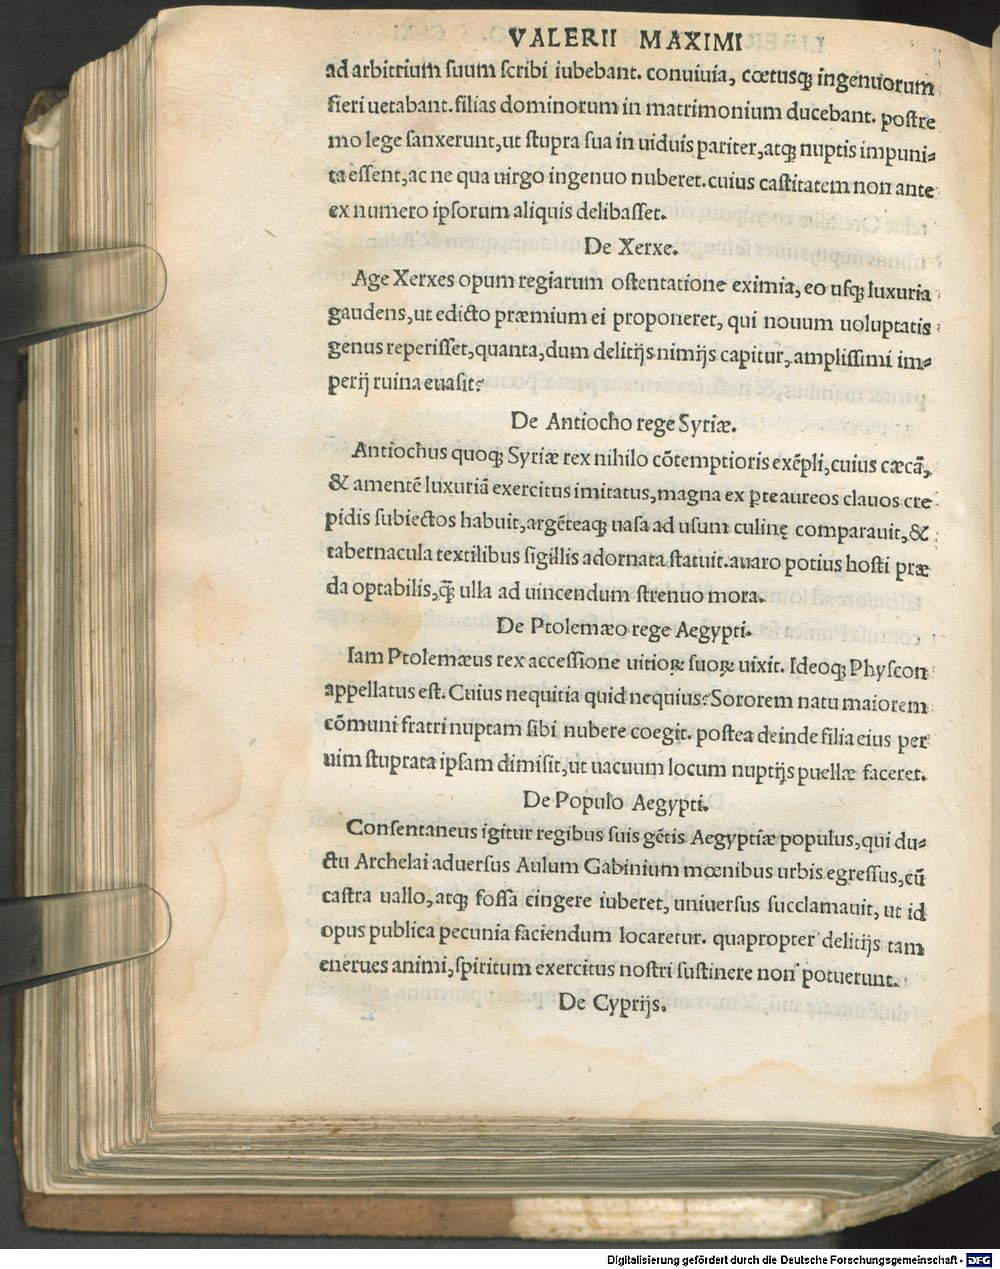 VALERII MAXIMI
ad arbitrium ſuum ſcribi iubebant. conuiuia, cœtusꝗ ingenuorum
fieri uetabant. filias dominorum in matrimonium ducebant. poſtre
mo lege ſanxerunt, ut ſtupra ſua in uiduis pariter, atꝗ nuptis impuni⸗
ta eſſent, ac ne qua uirgo ingenuo nuberet. cuius caſtitatem non ante
ex numero ipſorum aliquis delibaſſet.
De Xerxe.
Age Xerxes opum regiarum oſtentatione eximia, eo uſꝗ luxuria
gaudens, ut edicto præmium ei proponeret, qui nouum uoluptatis
genus reperiſſet, quanta, dum delitĳs nimĳs capitur, ampliſſimi im⸗
perĳ ruina euaſit?
De Antiocho rege Syriæ.
Antiochus quoꝗ Syriæ rex nihilo cõtemptioris exẽpli, cuius cæcã,
& amentẽ luxuriã exercitus imitatus, magna ex ꝑte aureos clauos cre
pidis ſubiectos habuit, argẽteaꝗ uaſa ad uſum culinę comparauit, &
tabernacula textilibus ſigillis adornata ſtatuit. auaro potius hoſti præ
da optabilis, ꝗ̃ ulla ad uincendum ſtrenuo mora.
De Ptolemæo rege Aegypti.
Iam Ptolemæus rex acceſſione uitioꝝ ſuoꝝ uixit. Ideoꝗ Phyſcon
appellatus eſt. Cuius nequitia quid nequius? Sororem natu maiorem
cõmuni fratri nuptam ſibi nubere coegit. poſtea deinde filia eius per
uim ſtuprata ipſam dimiſit, ut uacuum locum nuptĳs puellæ faceret.
De Populo Aegypti.
Conſentaneus igitur regibus ſuis gẽtis Aegyptiæ populus, qui du⸗
ctu Archelai aduerſus Aulum Gabinium mœnibus urbis egreſſus, cũ
caſtra uallo, atꝗ foſſa cingere iuberet, uniuerſus ſucclamauit, ut id
opus publica pecunia faciendum locaretur. quapropter delitĳs tam
enerues animi, ſpiritum exercitus noſtri ſuſtinere non potuerunt.
De Cyprĳs.
Digitalisierung gefördert durch die Deutsche Forschungsgemeinschaft - DFG